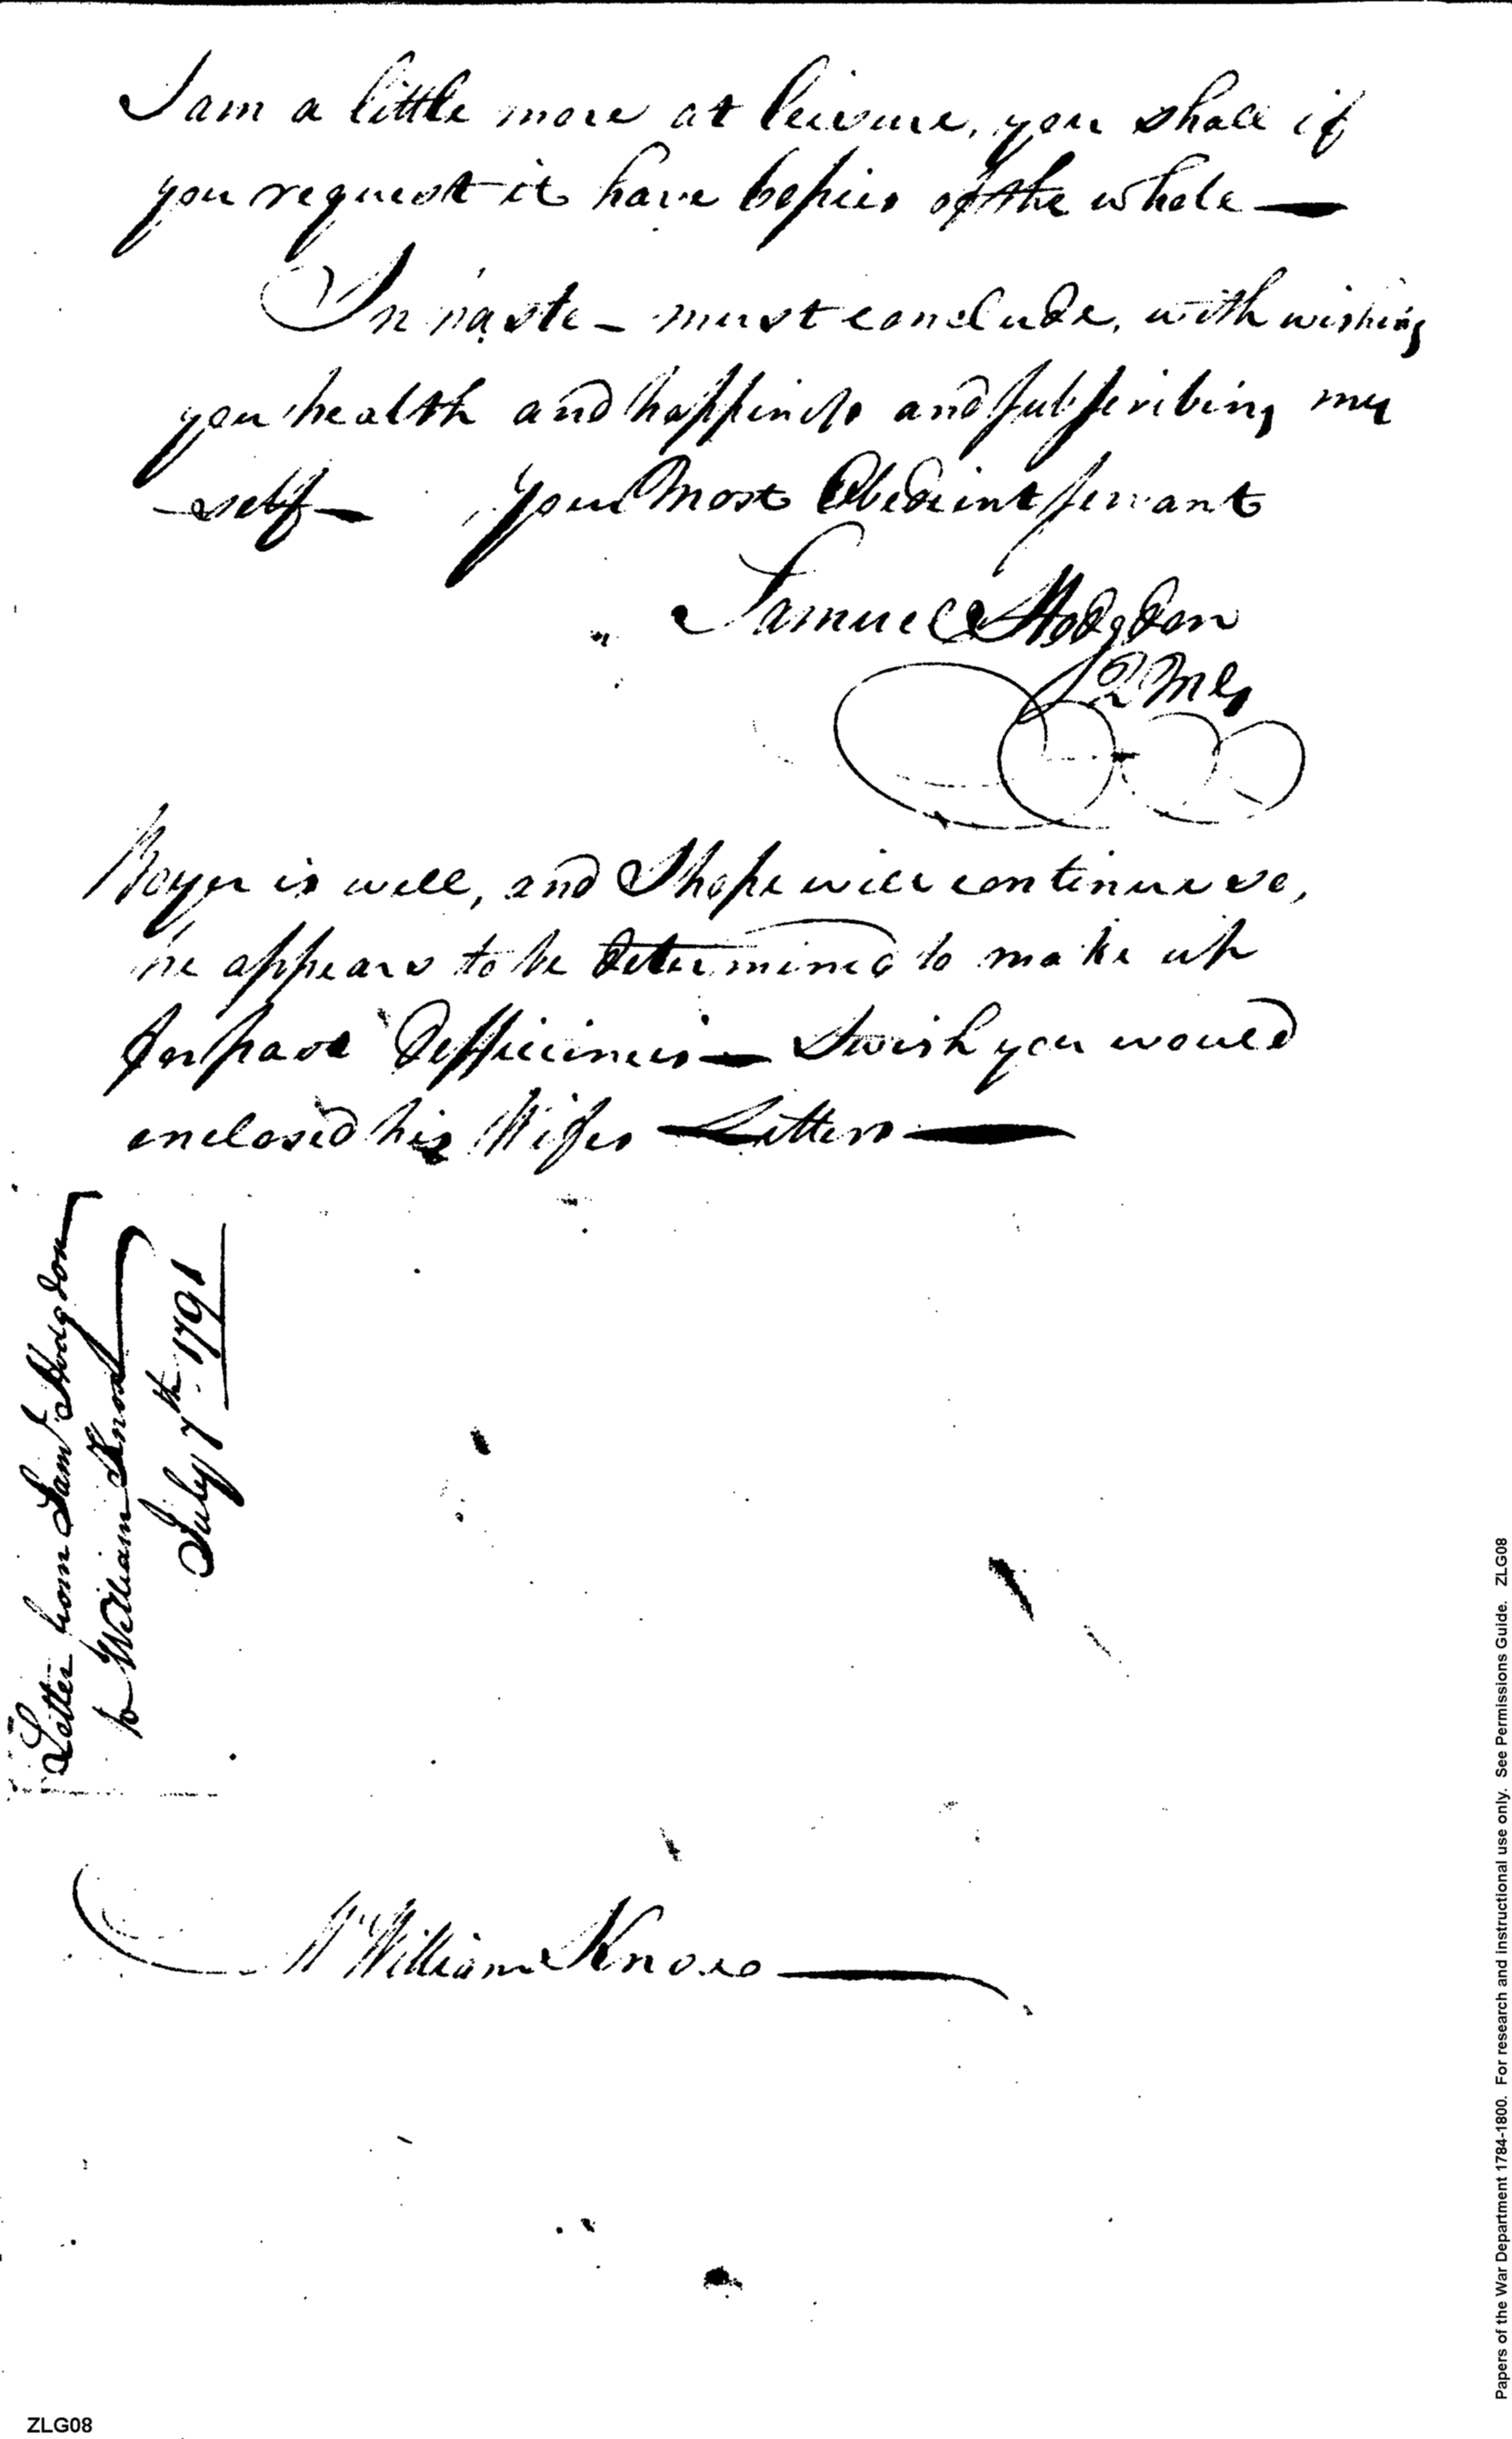 I am a little more at leisure, you shall if
you request it have Copies of the whole —
In haste — must conclude, with wishing
you health and happiness and subscribing my
-self — your Most Obedient servant
Samuel Hodgdon
QMG
Boyer is well, and I hope will continue so,
he appears to be determined to make up
for past Defficincies — I wish you would
enclosed his Wifes Letters —
Letter from Saml Hodgdon
to William Knox
July 7th. 1791
Mr William Knox —
Papers of the War Department 1784-1800. For research and instructional use only. See Permissions Guide. ZLG08
ZLG08